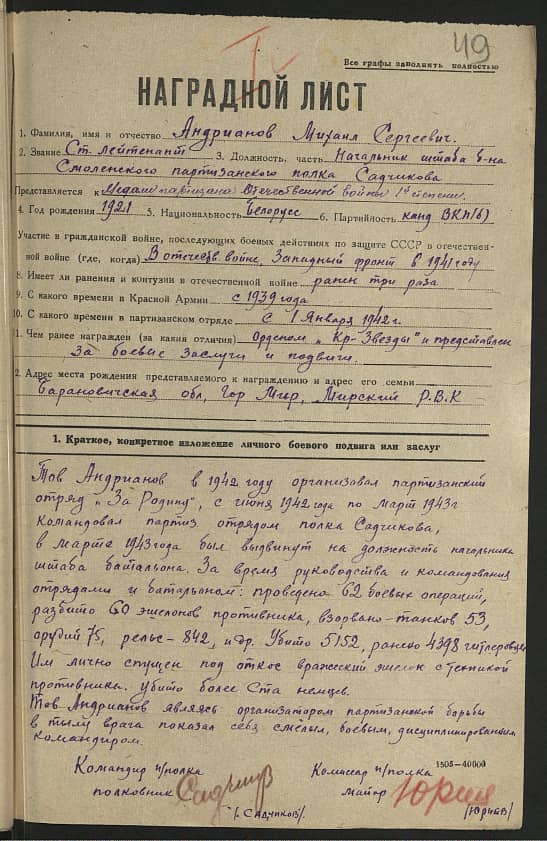 49
Все графы заполнять полностью
НАГРАДНОЙ ЛИСТ
1. Фамилия, имя и отчество Андрианов Михаил Сергеевич.
2. Звание Ст. лейтенант 3. Должность, часть Начальник штаба б-на
Смоленского партизанского полка Садчикова
Представляется к Медали партизана Отечественной войны 1й степени.
4. Год рождения 1921 5. Национальность Белорусс 6. Партийность канд ВКП(б)
Участие в гражданской войне, последующих боевых действиях по защите СССР в отечествен-
ной войне (где, когда) В отечеств. войне, Западный фронт в 1941 году
8. Имеет ли ранения и контузии в отечественной войне ранен три раза
9. С какого времени в Красной Армии с 1939 года
10. С какого времени в партизанском отряде с 1 Января 1942 г.
1. Чем ранее награжден (за какия отличия) Орденом „Кр-Звезды" и представлен
за боевые заслуги и подвиги.
2. Адрес места рождения представляемого к награждению и адрес его семьи
Барановичская обл, Гор Мир, Мирский Р.В.К
1. Краткое, конкретное изложение личного боевого подвига или заслуг
Тов Андрианов в 1942 году организовал партизанский
отряд „За Родину", с июня 1942 года по Март 1943 г
командовал партиз отрядом полка Садчикова,
в марте 1943 года был выдвинут на должность начальника
штаба батальона. За время руководства и командования
отрядами и батальоном: проведено 62 боевых операций,
разбито 60 эшелонов противника, взорвано-танков 53,
орудий 75, рельс-842, и др. Убито 5152, ранено 4398 гитлеровцев
Им лично спущен под откос вражеский эшелон с техникой
противника. убито более Ста немцев.
Тов Андрианов являясь организатором партизанской борьбы
в тылу врага показал себя смелым, боевым, дисциплинированным
командиром.
1505-40000
Командир п/полка Комиссар п/полка
полковник Садчиков майор Юрьев
/. Садчиков/. /Юрьев/